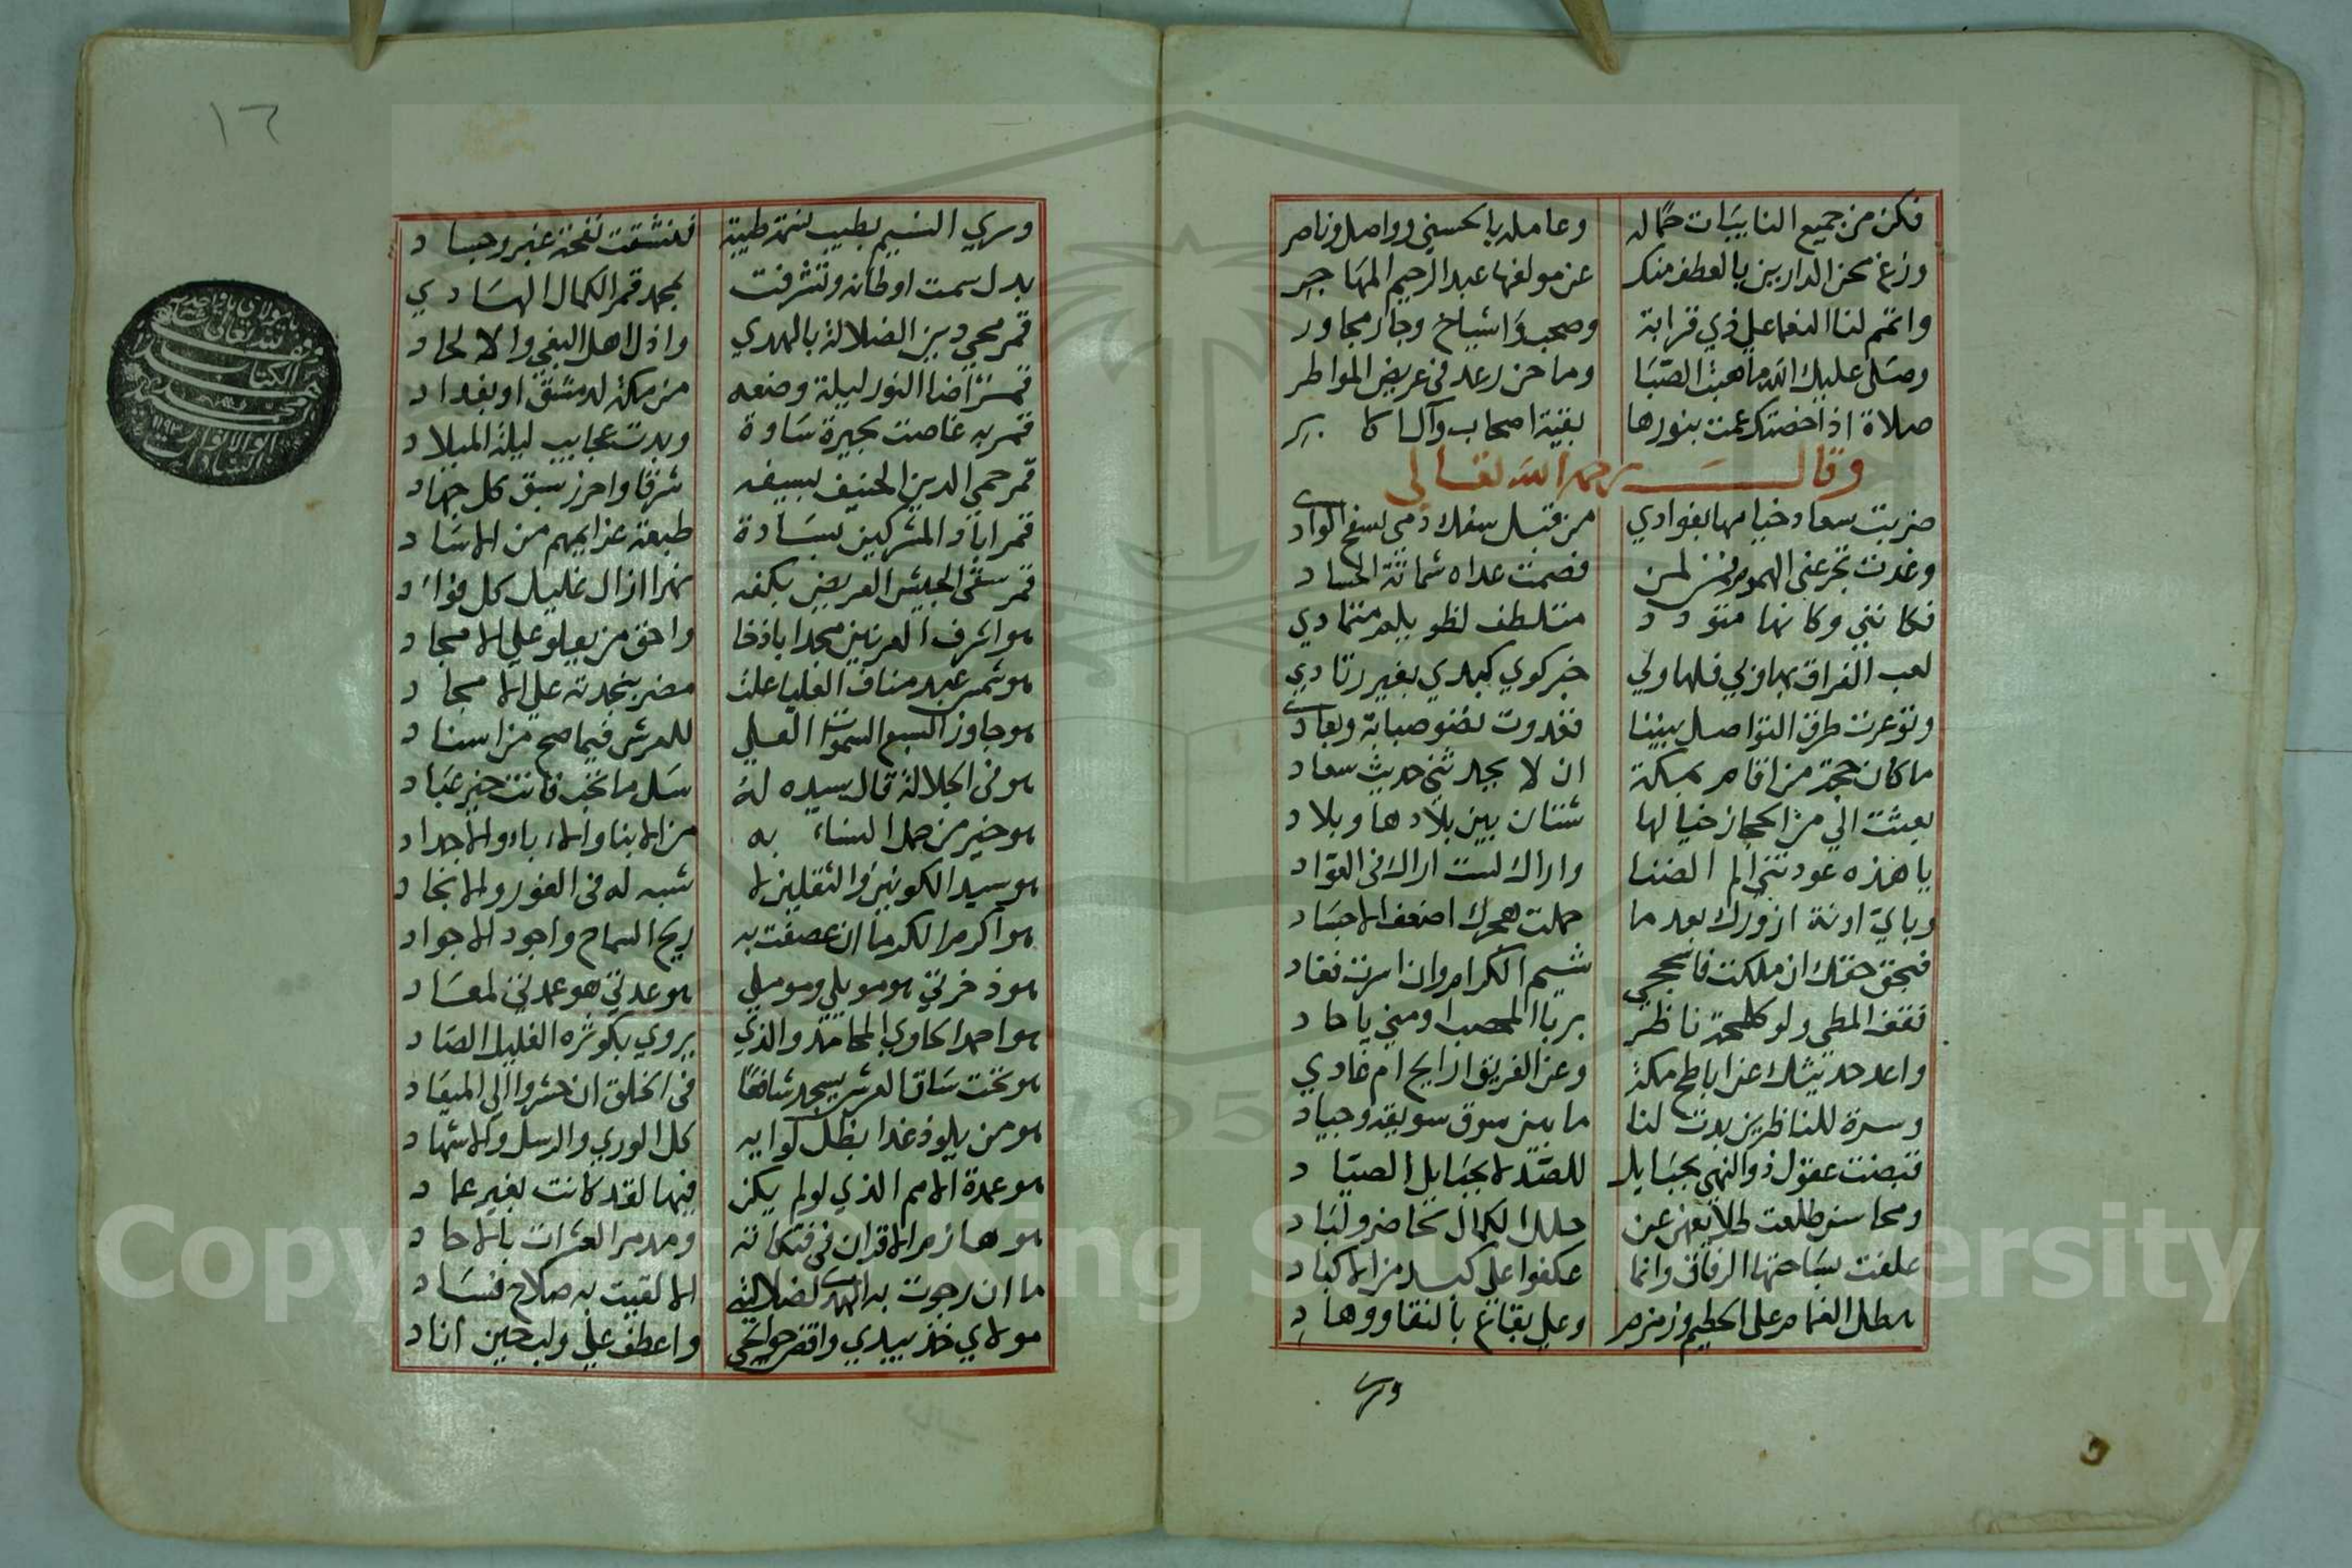 فكن من جميع النايبات حماله    وعامله بالحسني وواصل وناصر
وزغ محن الدارين بالعطف منك    عن مولفها عبد الرحيم المهاجر
واتمم لنا النعما علي ذي قرابة    وصحب واشياخ وجار مجاور
وصلى عليك الله ما هبت الصبا    وما حن رعد في عريض المواطر
صلاة اذا خصتك عمت بنورها    بقية اصحاب وآل اكابر
وقال رحمه الله تعالى
ضربت سعاد خيامها بفوادي    من قبل سفك دمي بسفح الوادى
وغدت تجرعني الهموم فمن لمن    قصمت عداه شماتة الحساد
فكانني وكانها متودد    متلطف لظويلم متمادي
لعب الفراق بها وبي فلها ولي    خبر كوي كبدي بغير زنادي
وتوعرت طرق التواصل بيننا    فغدوت نضو صبابة وبعادى
ما كان حجة من اقام بمكة    ان لا يجد ثني حديث سعاد
بعثت الي من الحجاز خيالها    شتان بين بلادها وبلاد
يا هذه عودتني الم الضنا    واراك لست اراك في العواد
وباي ادنة ازورك بعد ما    حملت هجرك اضعف الاجساد
فبحق حقك ان ملكت فاسجحي    شيم الكرام وان اسرت فعاد
فقف المطي ولو كلمحة ناظر    بربا المحصب او مني يا حاد
واعد حديثك عن اباطح مكة    وعن الفريق ارايح ام غادي
وسرة للناظرين بدت لنا    ما بين سوق سويقه وجياد
قبضت عقول ذوالنهي بحبايل    للصد لا بحبايل الصياد
ومحاسن طلعت طلايعهن عن    حلل الكمال لحاضر ولباد
علقت بساحتها الرفاق وانما    عكفوا علي كبد من الاكباد
هطل الغمام على الحطيم وزمزم    وعلي بقاع بالنقا ووهاد
وسرى
١٦
وسري النسيم بطيب نسمة طيبة    فتنشقت نفحة عنبر وجساد
بدل سمت اوطانه وتشرفت    بمجمد قمر الكمال الهادي
قمر محي دين الضلالة بالهدي    واذل اهل البغي والالحاد
قمر اضا النور ليلة وضعه    من مكة لدمشق او بغداد
قمر به غاصت بحيرة ساوة    وبدت عجايب ليلة الميلاد
قمر حمي الدين الحنيف بسيفه    شرفا واحرز سبق كل جهاد
قمر اباد المشركين بسادة    طبعت عزايمهم من الاساد
قمر سقى الجيش العريض بكفه    نهرا ازال غليل كل فواد
هو اشرف العرنين مجدا باذخا    واحق من يعلو علي الامجاد
هو شمس عبد مناف العليا علت    مضر بنجدته علي الامجاد
هو جاوز السبع السموات العلي    للعرش فيما صح من اسناد
هو في الجلالة قال سيده له    سل ما تحب فانت خير عباد
هو خير من حمل النساء به    من الابنا والاباء والاجداد
هو سيد الكونين والثقلين لا    شبه له في الغور والانجاد
هو اكرم الكرما ان عصفت به    ريح السماح واجود الاجواد
هو ذخرتي هو مويلي وموملي    هو عدتي هو عمدتي لمعاد
هو احمد الحاوي المحامد والذي    يروي بكوثره الغليل الصاد
هو تحت ساق العرش يسجد شافعا    في الخلق ان حشروا الي الميعاد
هو من يلوذ غدا بظل لوايه    كل الوري والرسل والاشهاد
هو عمدة الامم الذي لولم يكن    فيها لقد كانت بغير عماد
هو هازم الاقران في فتكاته    ومدمر العشرات بالاحاد
ما ان رجوت به الهدى لضلالتي    الا لقيت به صلاح فساد
مولاي خذ بيدي واقض حوايجي    واعطف علي ولب حين اناد